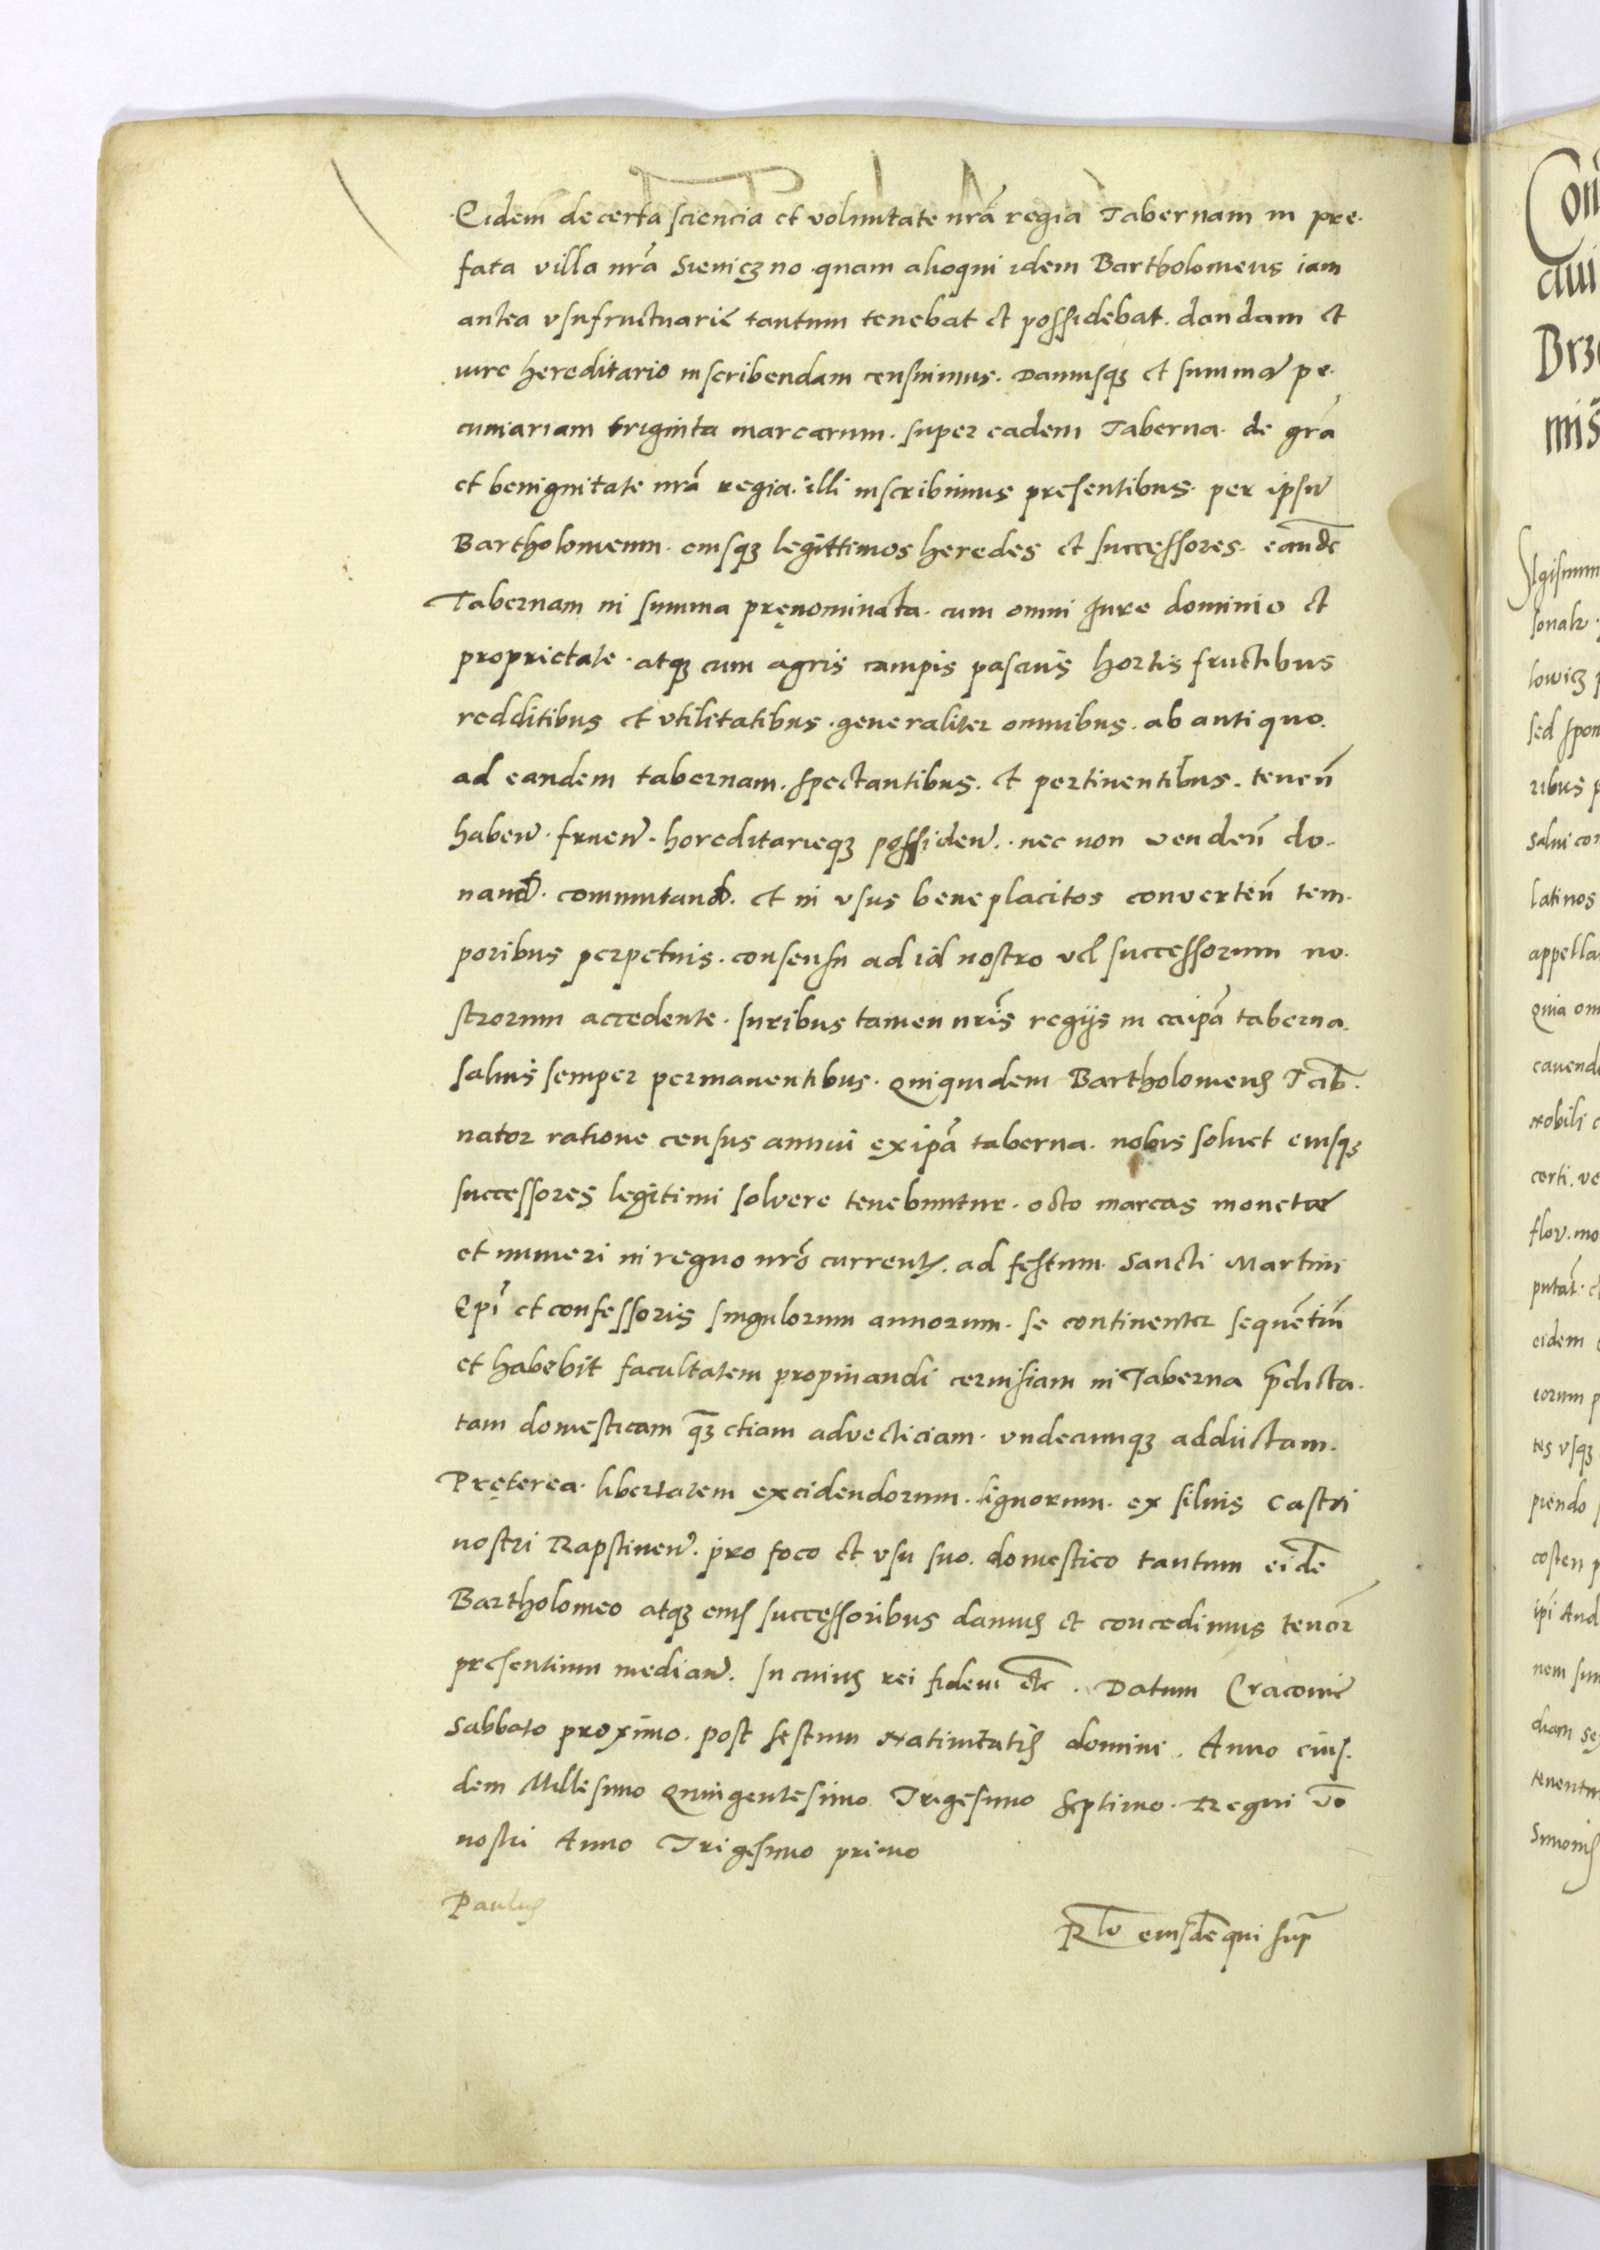 Eidem de certa sciencia et voluntate nrã regia Tabernam in pre-
fata villa nrã Sieniczno quam alioqui idem Bartholomeus iam
antea vsufructuariè tantum tenebat et possidebat. dandam et
iure hereditario inscribendam censuimus. Damusqꝫ et summã pe-
cuniariam triginta marcarum. super eadem Taberna. de grã
et benignitate nrã regia. illi inscribimus presentibus. per ipsũ
Bartholomeum. eiusqꝫ legittimos heredes et successores. eandẽ
Tabernam in summa pręnominata. cum omni Jure dominio et
proprietate. atqꝫ cum agris campis pascuis hortis fructibus
redditibus et vtilitatibus. generaliter omnibus. ab antiquo.
ad eandem tabernam. spectantibus. et pertinentibus. teneñ
habeñ. frueñ. hereditarieqꝫ possideñ. nec non vendeñ do-
nand. commutand. et in vsus beneplacitos converteñ tem-
poribus perpetuis. consensu ad id nostro vel successorum no-
strorum accedente. Juribus tamen nrĩs regijs in ea ipã taberna.
saluis semper permanentibus. Quiquidem Bartholomeus Tab-
nator ratione census annui ex ipã taberna. nobis soluet eiusqꝫ
successores legitimi solvere tenebuntur. octo marcas monetae
et numeri in regno nrõ currentis. ad festum. Sancti Martini
Epĩ et confessoris singulorum annorum. se continenter sequentiũ
et habebit facultatem propinandi ceruisiam in Taberna p̃dicta.
tam domesticam q̃ꝫ etiam advecticiam. vndecumqꝫ addúctam.
Pręterea. libertatem excidendorum. lignorum. ex siluis Castri
nostri Rapstineñ. pro foco et vsu suo. domestico tantum eidẽ
Bartholomeo atqꝫ eius successoribus damus et concedimus tenorẽ
presentium mediañ. In cuius rei fidem etc. Datum Cracouie
Sabbato proximo. post festum Natiuitatis domini. Anno eius-
dem Millesimo Quingentesimo Trigesimo septimo. Regni vo
nostri Anno Trigesimo primo
Paulus
Rlo eiusdẽ qui supͣ